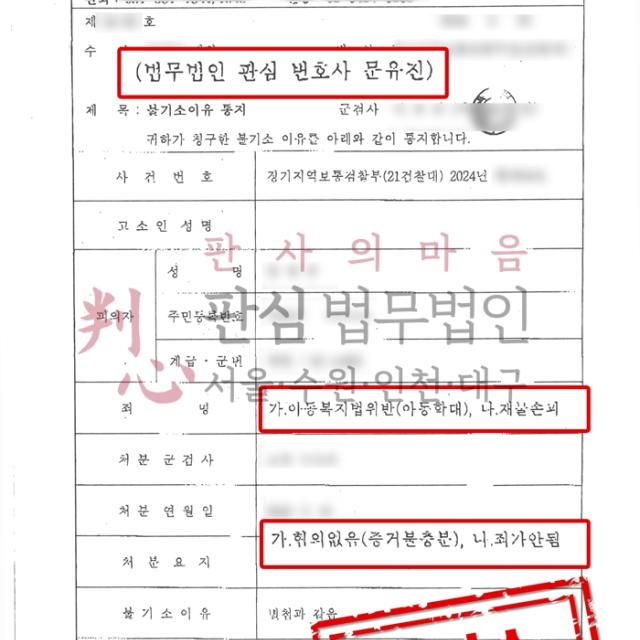 제 호
수
(법무법인 판심 변호사 문유진)
제 목 : 불기소이유 통지 군검사
귀하가 청구한 불기소 이유를 아래와 같이 통지합니다.
사 건 번 호 경기지역보통검찰부(21검찰대) 2024년
고 소 인 성 명
판사의 마음
성 명
판심 법무법인
判心
피의자 주민등록번호
계급 · 군번
서울·수원·인천·대구
죄 명 가.아동복지법위반(아동학대), 나.재물손괴
처 분 군 검 사
처 분 연 월 일
처 분 요 지 가.혐의없음(증거불충분), 나.죄가안됨
불 기 소 이 유 별첨과 같음